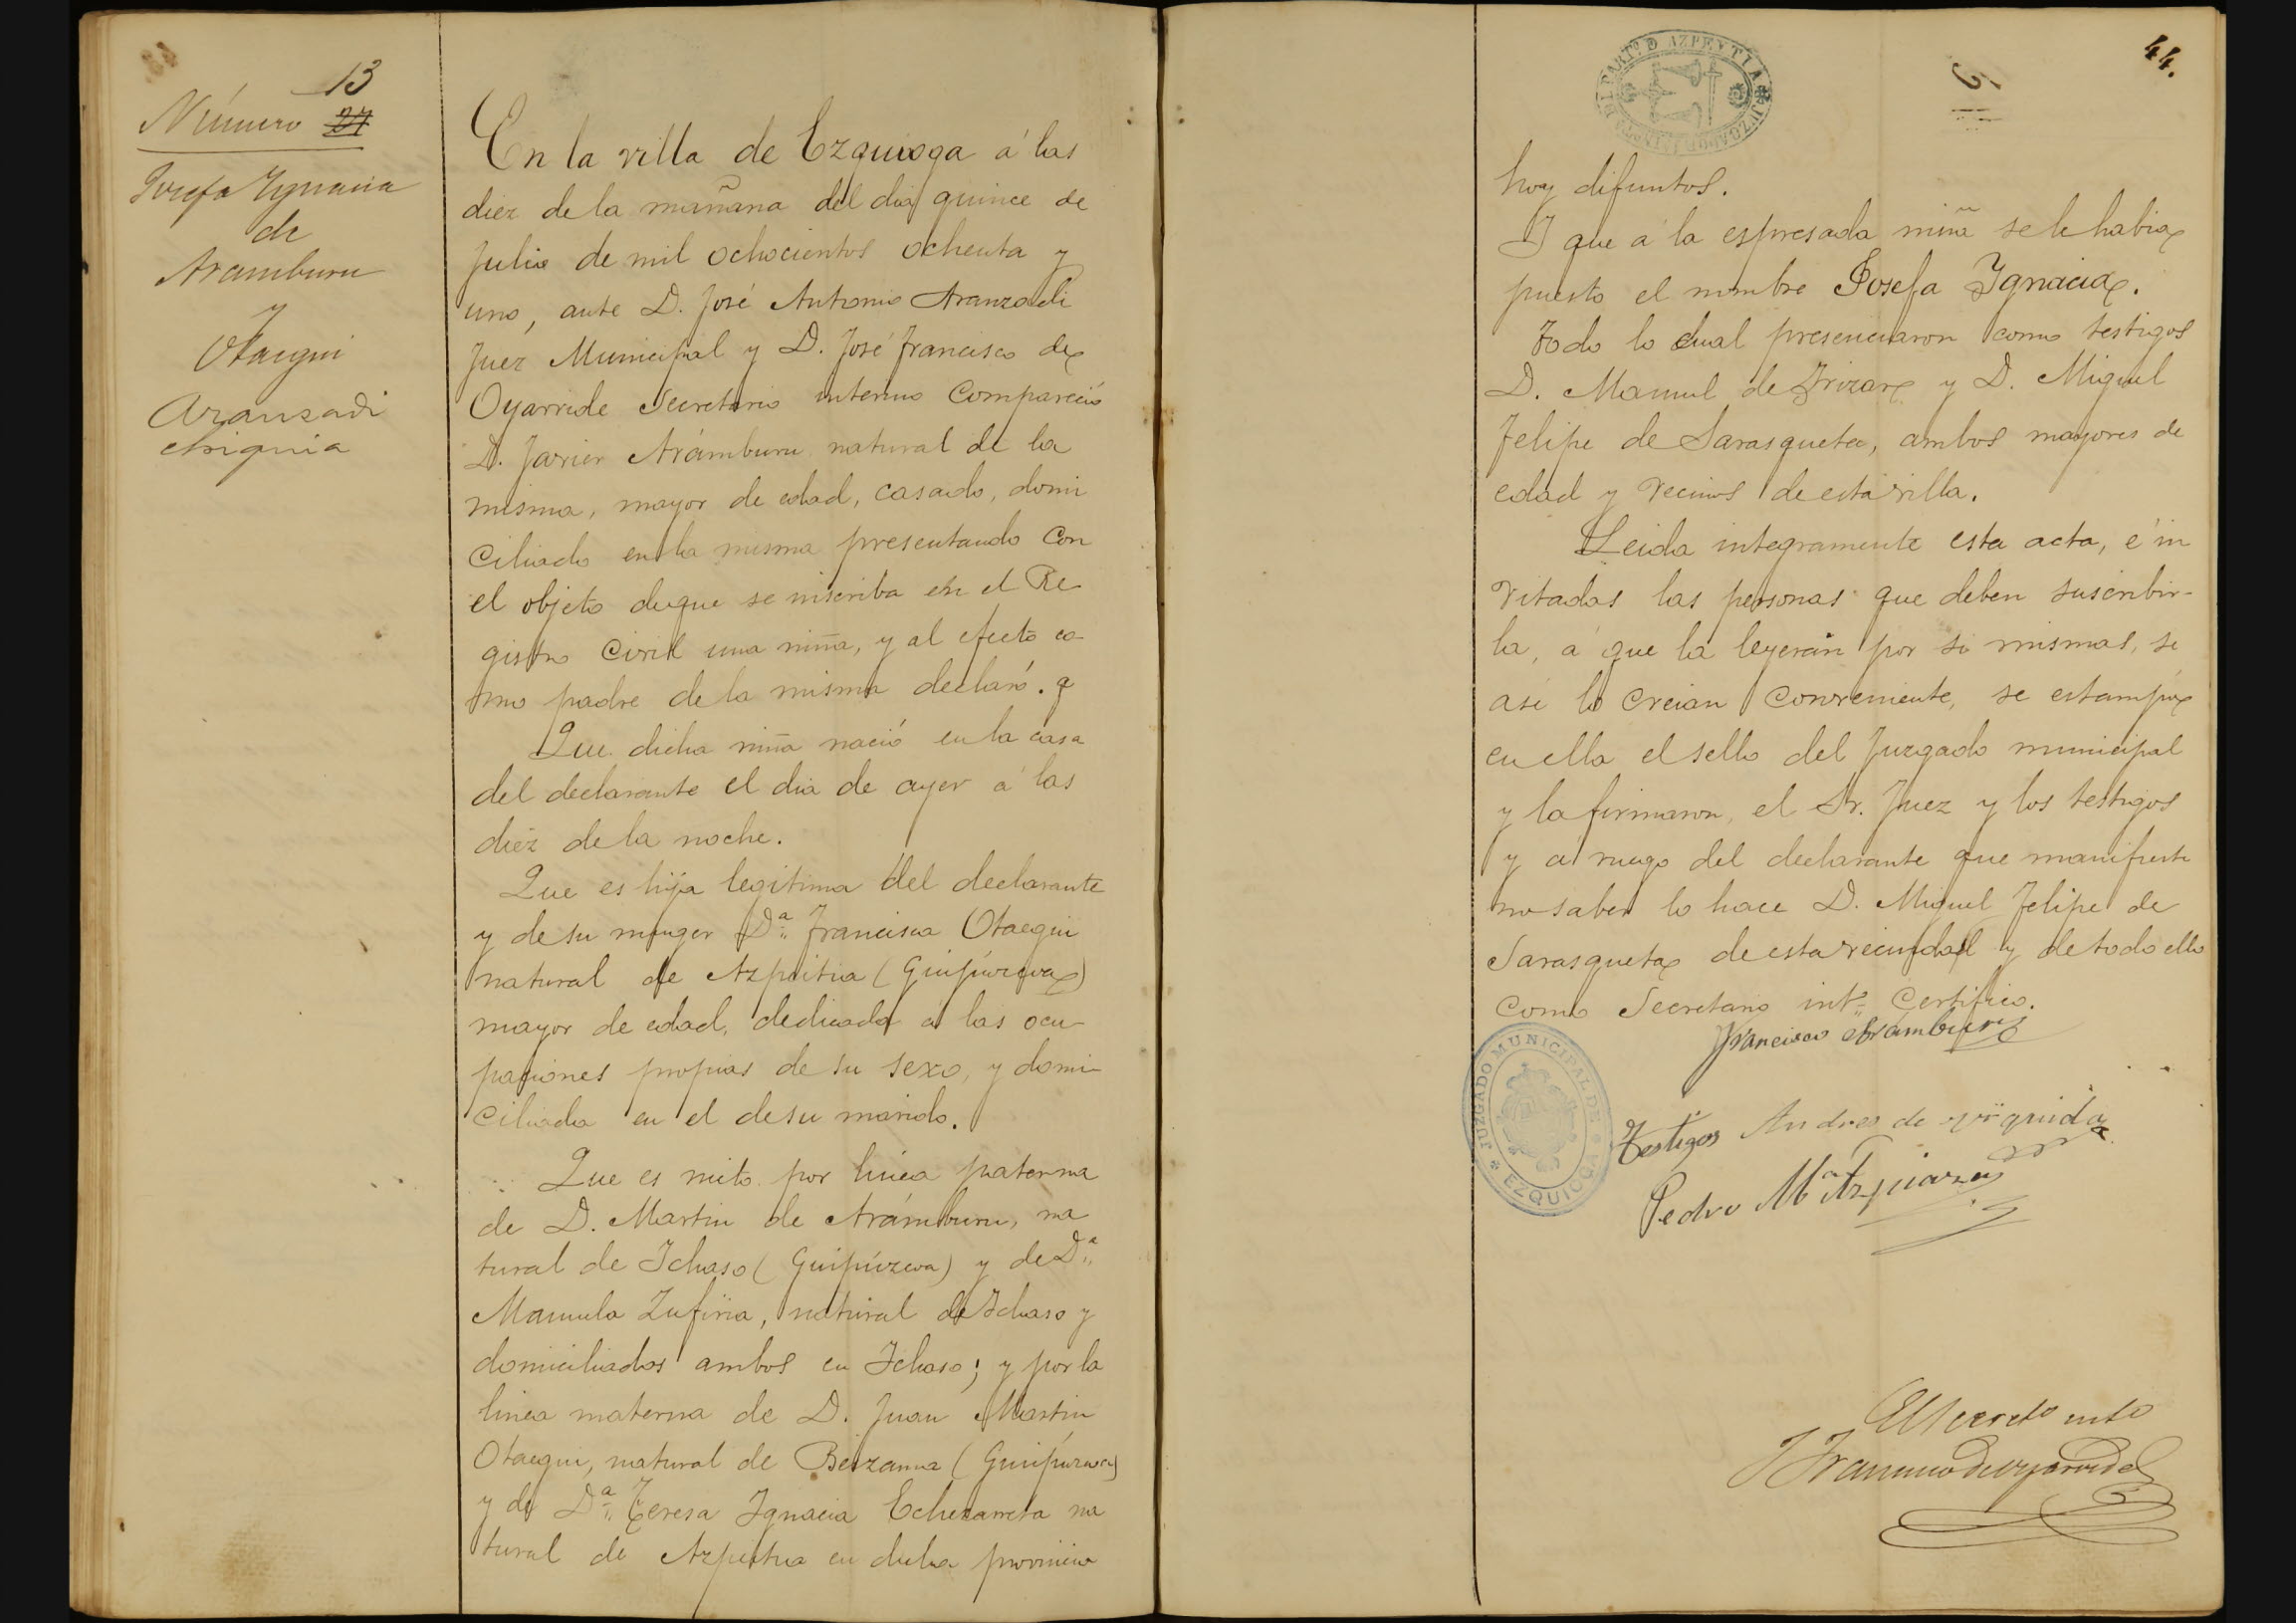 13
Número 27
Josefa Ygnacia
de
Aramburu
y
Otaegui
Aranzadi
44.
En la villa de Ezquioga á las
diez de la mañana del dia quince de
Julio de mil ochocientos ochenta y
uno, ante D. José Antonio Aranzadi
Juez Municipal y D. José Francisco de
Oyarvide Secretario interino Compareció
D. Javier Arámburu natural de la
misma, mayor de edad, casado, domi
ciliado en la misma presentando con
el objeto de que se inscriba en el Re
gistro Civil una niña, y al efecto co-
mo padre de la misma declaró. q
Que dicha niña nació en la casa
del declarante el dia de ayer á las
diez de la noche.
Que es hija legitima del declarante
y de su muger D.ª Francisca Otaegui
natural de Azpeitia (Guipúzcoa)
mayor de edad, dedicada á las ocu-
paciones propias de su sexo, y domi-
ciliada en el de su marido.
Que es nieto por linea paterna
de D. Martin de Arámburu, na
tural de Ichaso (Guipúzcoa) y de D.ª
Manuela Zufiria, natural de Ichaso y
domiciliados ambos en Ichaso; y por la
linea materna de D. Juan Martin
Otaegui, natural de Beizama (Guipúzcoa)
y de D.ª Teresa Ignacia Echezarreta na
tural de Azpeitia en dicha provincia
hoy difuntos.
Y que a la espresada niña se le habia
puesto el nombre Josefa Ignacia.
Todo lo cual presenciaron como testigos
D. Manuel de Irizar y D. Miguel
Felipe de Sarasqueta, ambos mayores de
edad y vecinos de esta villa.
Leida integramente esta acta, é in
vitadas las personas que deben suscribir-
la, á que la leyeran por si mismas, si
asi lo creian conveniente, se estampó
en ella el sello del Juzgado municipal
y la firmaron, el Sr. Juez y los testigos
y á ruego del declarante que manifestó
no saber lo hace D. Miguel Felipe de
Sarasqueta de esta vecindad y de todo ello
como Secretario int.º Certifico.
Francisco Aramburu
JUZGADO MUNICIPAL DE EZQUIOGA
Testigos Andres de
Pedro M.ª
El Secret.º int.º
J. Francisco de Oyarvide